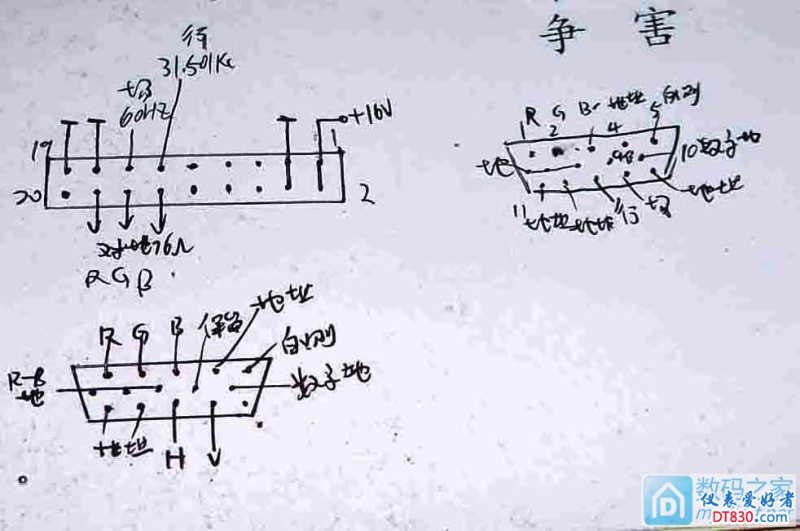 争 害
行
31.501Kc
场
60HZ
+16V
19
1
20
2
对地76Ω
R G B
R G B 地址 自测
1 2 4 5
地
10数字地
11 地址 地址 行 场 地址
R G B 保留 地址 自测
R-B
地
数字地
地址
H V
数码之家
仪表爱好者
DT830.com